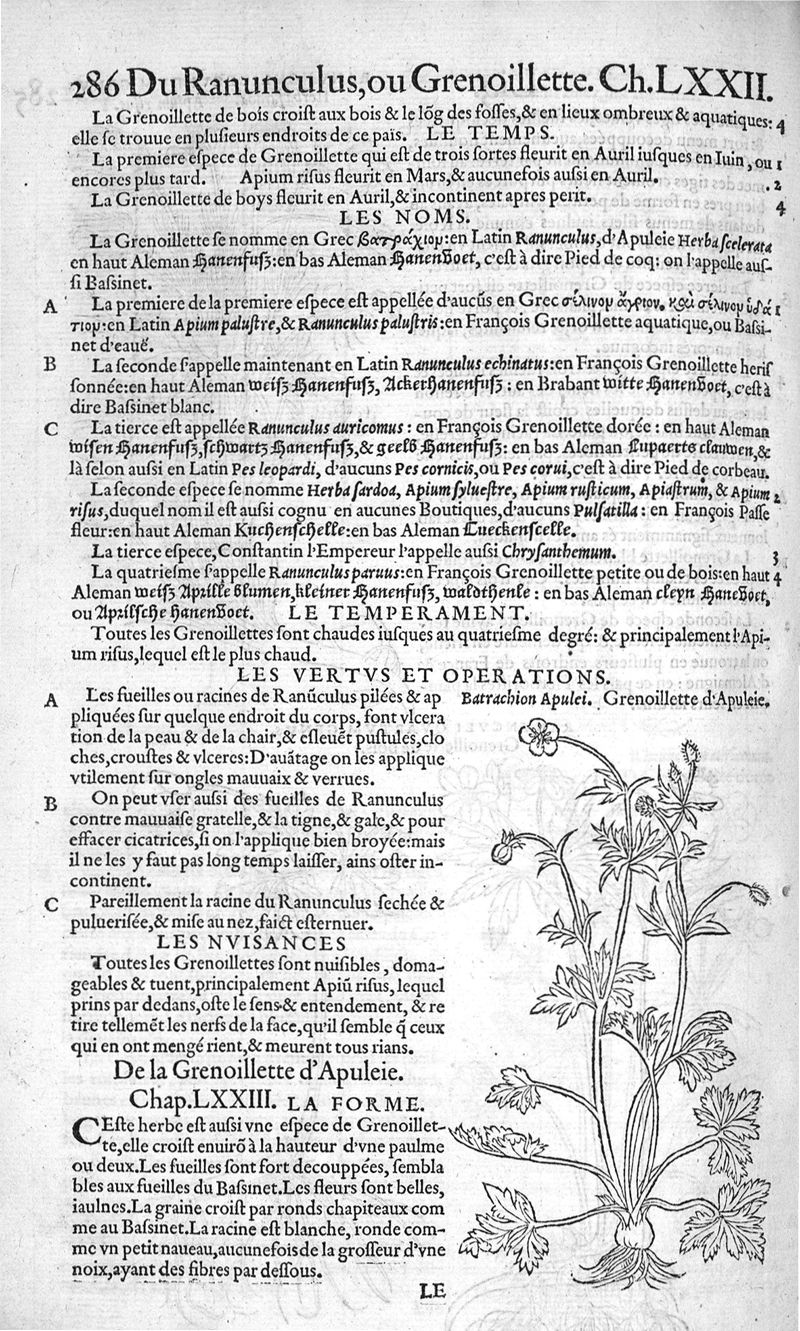 286 Du Ranunculus, ou Grenoillette. Ch. LXXII.
La Grenoillette de bois croiſt aux bois & le lõg des foſſes, & en lieux ombreux & aquatiques: 4
elle ſe trouue en pluſieurs endroits de ce pais. LE TEMPS.
La premiere eſpece de Grenoillette qui eſt de trois ſortes fleurit en Auril iuſques en Iuin, ou 1
encores plus tard. Apium riſus fleurit en Mars, & aucunefois auſsi en Auril. 2
La Grenoillette de boys fleurit en Auril, & incontinent apres perit. 4
LES NOMS.
La Grenoillette ſe nomme en Grec βατράχιον: en Latin Ranunculus, d'Apuleie Herba ſcelerata
en haut Aleman Hanenfuſz: en bas Aleman Hanenvoet, c'eſt à dire Pied de coq: on l'appelle auſ-
ſi Baſsinet.
A La premiere de la premiere eſpece eſt appellée d'aucũs en Grec σέλινον ἄγριον, καὶ σέλινον ὑδά 1
τιον: en Latin Apium paluſtre, & Ranunculus paluſtris: en François Grenoillette aquatique, ou Baſsi-
net d'eauë.
B La ſeconde s'appelle maintenant en Latin Ranunculus echinatus: en François Grenoillette heriſ
ſonnée: en haut Aleman weiſz Hanenfuſz, Ackerhanenfuſz: en Brabant witte Hanenvoet, c'eſt à
dire Baſsinet blanc.
C La tierce eſt appellée Ranunculus auricomus: en François Grenoillette dorée: en haut Aleman
wiſen Hanenfuſz, ſchwartz Hanenfuſz, & geelb Hanenfuſz: en bas Aleman Lupaerts clauwen, &
là ſelon auſsi en Latin Pes leopardi, d'aucuns Pes cornicis, ou Pes corui, c'eſt à dire Pied de corbeau.
La ſeconde eſpece ſe nomme Herba ſardoa, Apium ſylueſtre, Apium ruſticum, Apiaſtrum, & Apium 2
riſus, duquel nom il eſt auſsi cognu en aucunes Boutiques, d'aucuns Pulſatilla: en François Paſſe
fleur: en haut Aleman Kuchenſchelle: en bas Aleman Lueckenſcelle.
La tierce eſpece, Conſtantin l'Empereur l'appelle auſsi Chryſanthemum. 3
La quatrieſme s'appelle Ranunculus paruus: en François Grenoillette petite ou de bois: en haut 4
Aleman weiſz Aprille blumen, kleiner Hanenfuſz, waldthenle: en bas Aleman cleyn Hanevoet,
ou Aprilſche hanenvoet. LE TEMPERAMENT.
Toutes les Grenoillettes ſont chaudes iuſques au quatrieſme degré: & principalement l'Api-
um riſus, lequel eſt le plus chaud.
LES VERTVS ET OPERATIONS.
A Les fueilles ou racines de Ranũculus pilées & ap
pliquées ſur quelque endroit du corps, font vlcera
tion de la peau & de la chair, & eſleuẽt puſtules, clo
ches, crouſtes & vlceres: D'auãtage on les applique
vtilement ſur ongles mauuaix & verrues.
B On peut vſer auſsi des fueilles de Ranunculus
contre mauuaiſe gratelle, & la tigne, & gale, & pour
effacer cicatrices, ſi on l'applique bien broyée: mais
il ne les y faut pas long temps laiſſer, ains oſter in-
continent.
C Pareillement la racine du Ranunculus ſechée &
puluerisée, & miſe au nez, faict eſternuer.
LES NVISANCES
Toutes les Grenoillettes ſont nuiſibles, doma-
geables & tuent, principalement Apiũ riſus, lequel
prins par dedans, oſte le ſens & entendement, & re
tire tellemẽt les nerfs de la face, qu'il ſemble q̃ ceux
qui en ont mengé rient, & meurent tous rians.
De la Grenoillette d'Apuleie.
Chap. LXXIII. LA FORME.
CEſte herbe eſt auſsi vne eſpece de Grenoillet-
te, elle croiſt enuirõ à la hauteur d'vne paulme
ou deux. Les fueilles ſont fort decouppées, ſembla
bles aux fueilles du Baſsinet. Les fleurs ſont belles,
iaulnes. La graine croiſt par ronds chapiteaux com
me au Baſsinet. La racine eſt blanche, ronde com-
me vn petit naueau, aucunefois de la groſſeur d'vne
noix, ayant des fibres par deſſous.
Batrachion Apulei. Grenoillette d'Apuleie.
LE